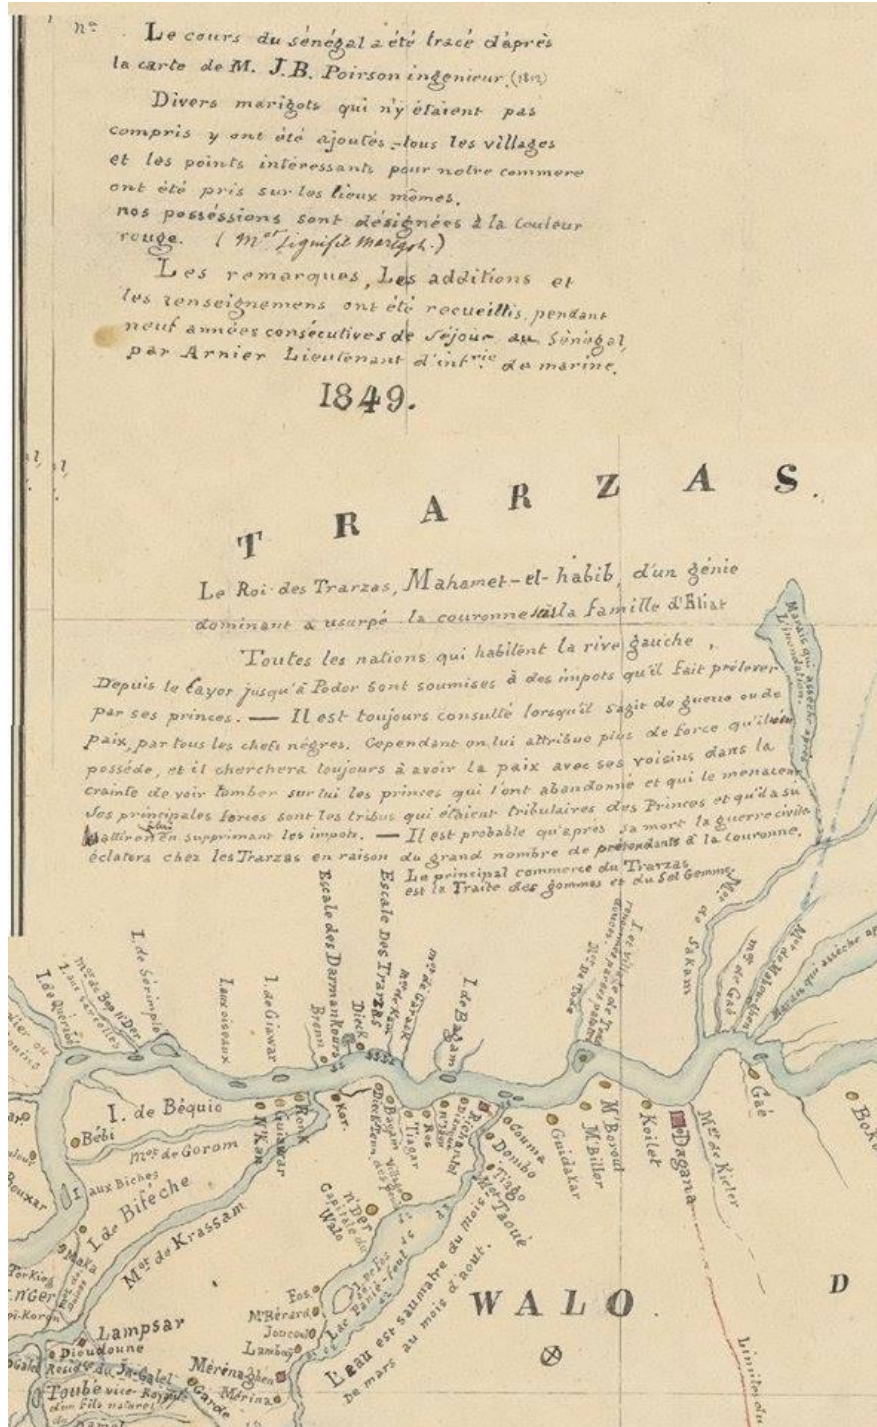 nª
Le cours du sénégal a été tracé d'après
la carte de M. J.B. Poirson ingenieur. (1802)
Divers marigots qui n'y étaient pas
compris y ont été ajoutés_tous les villages
et les points intéressants pour notre commerce
ont été pris sur les lieux mêmes.
nos posséssions sont désignées à la couleur
rouge. (Mot signifie Marigot.)
Les remarques, Les additions et
les renseignemens ont été recueillis, pendant
neuf années consécutives de séjour au Sénégal,
par Arnier Lieutenant d'intrie de marine.
1849.
TRARZAS.
Le Roi des Trarzas, Mahamet-el-habib, d'un génie
dominant a usurpé la couronne sur la famille d'Eliat
Toutes les nations qui habitent la rive gauche,
Depuis le Cayor jusqu'à Podor sont soumises à des impots qu'il fait prélever
par ses princes. — Il est toujours consulté lorsqu'il s'agit de guerre ou de
paix, par tous les chefs nègres. Cependant on lui attribue plus de force qu'il n'en
posséde, et il cherchera toujours à avoir la paix avec ses voisins dans la
crainte de voir tomber sur lui les princes qui l'ont abandonné et qui le menacent
Ses principales forces sont les tribus qui étaient tributaires des Princes et qu'il a su
attirer en supprimant les impots. — Il est probable qu'après sa mort la guerre civile
éclatera chez les Trarzas en raison du grand nombre de prétendants à la couronne.
Le principal commerce du Trarzas
est la Traite des gommes et du Sel Gemme.
Marais qui assèche après
L'inondation.
I. de Querabé
I. aux sarcelles
Mot de Bop n'Der
I. de Sérimple
I. aux oiseaux
I. de Giawar
Escale des Darmankours
Brenn
Dieck
Escale Des Trarzas
Mot de Garack
I. de Bagam
Mot de Sokam
Mot de Gaé
Marais qui assèche
I. de Béquio
Bébi
Mot de Gorom
I. aux Biches
I. de Bifèche
Mot de Krassam
Maka
N'Kan
Guiawar
Ronk
Kor.
Tiagar
Ros
Richantol
Gouma
Dombo
Tiago
Mot Taoué
Guidakar
M'Billor
M'Borout
Koilet
Dagana
Mot de Kieler
Gaé
Boko
n'Der
Capitale du
Walo
Lac Panié-foul
L'eau est saumatre du mois
De mars au mois d'aout.
WALO
D
Limites du
Fos
M'Bérard
Joucoul
Lambay
Mérinaghen
Mérina
Lampsar
Dieudoune
Garde
Toubé vice-Royauté
d'un fils naturel